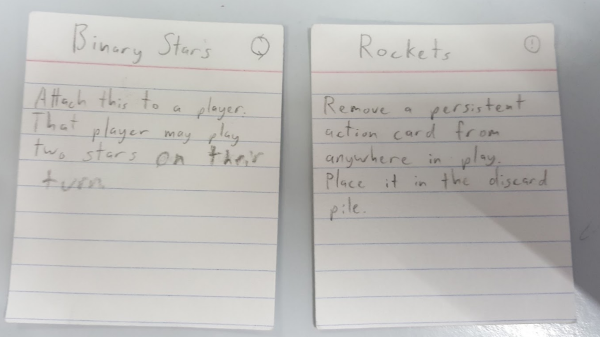 Binary Stars
Attach this to a player.
That player may play
two stars on their
turn
Rockets !
Remove a persistent
action card from
anywhere in play.
Place it in the discard
pile.